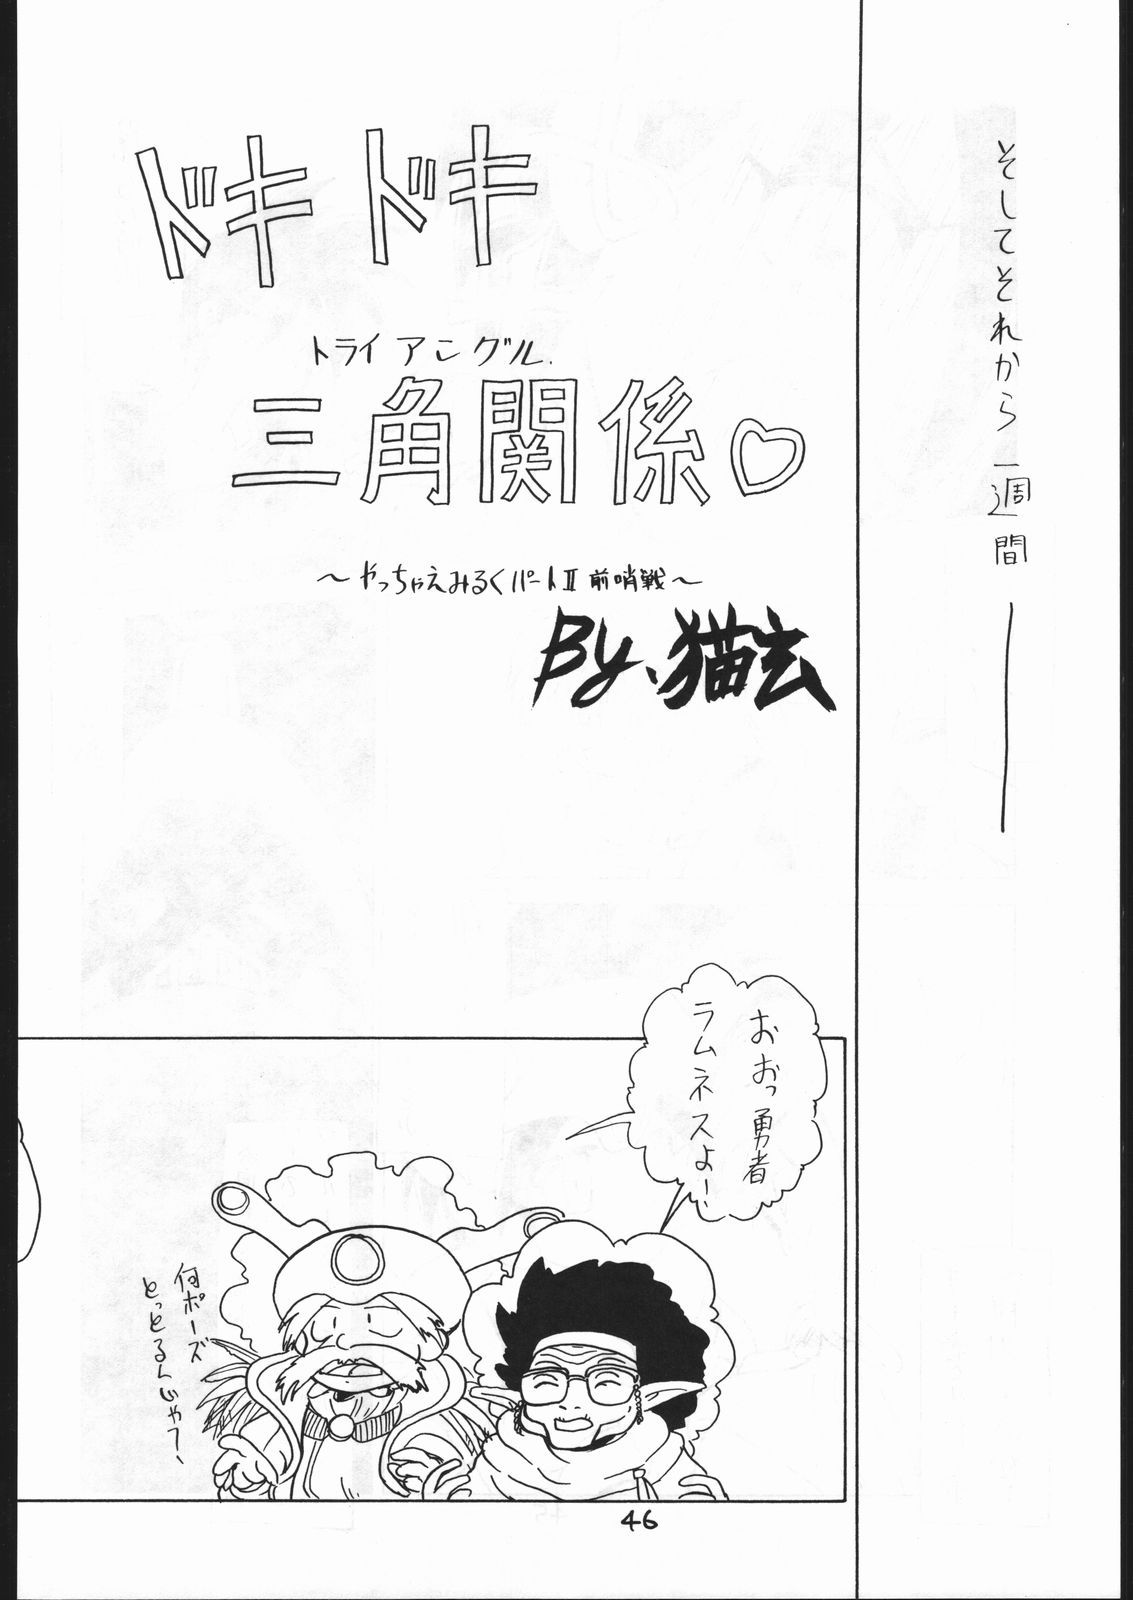 そしてそれから一週間
ドキドキ
トライアングル.
三角関係♡
～やっちゃえみるくパートⅡ 前哨戦～
By.猫玄
おおっ勇者
ラムネスよー
何ポーズ
とっとるんじゃて
46